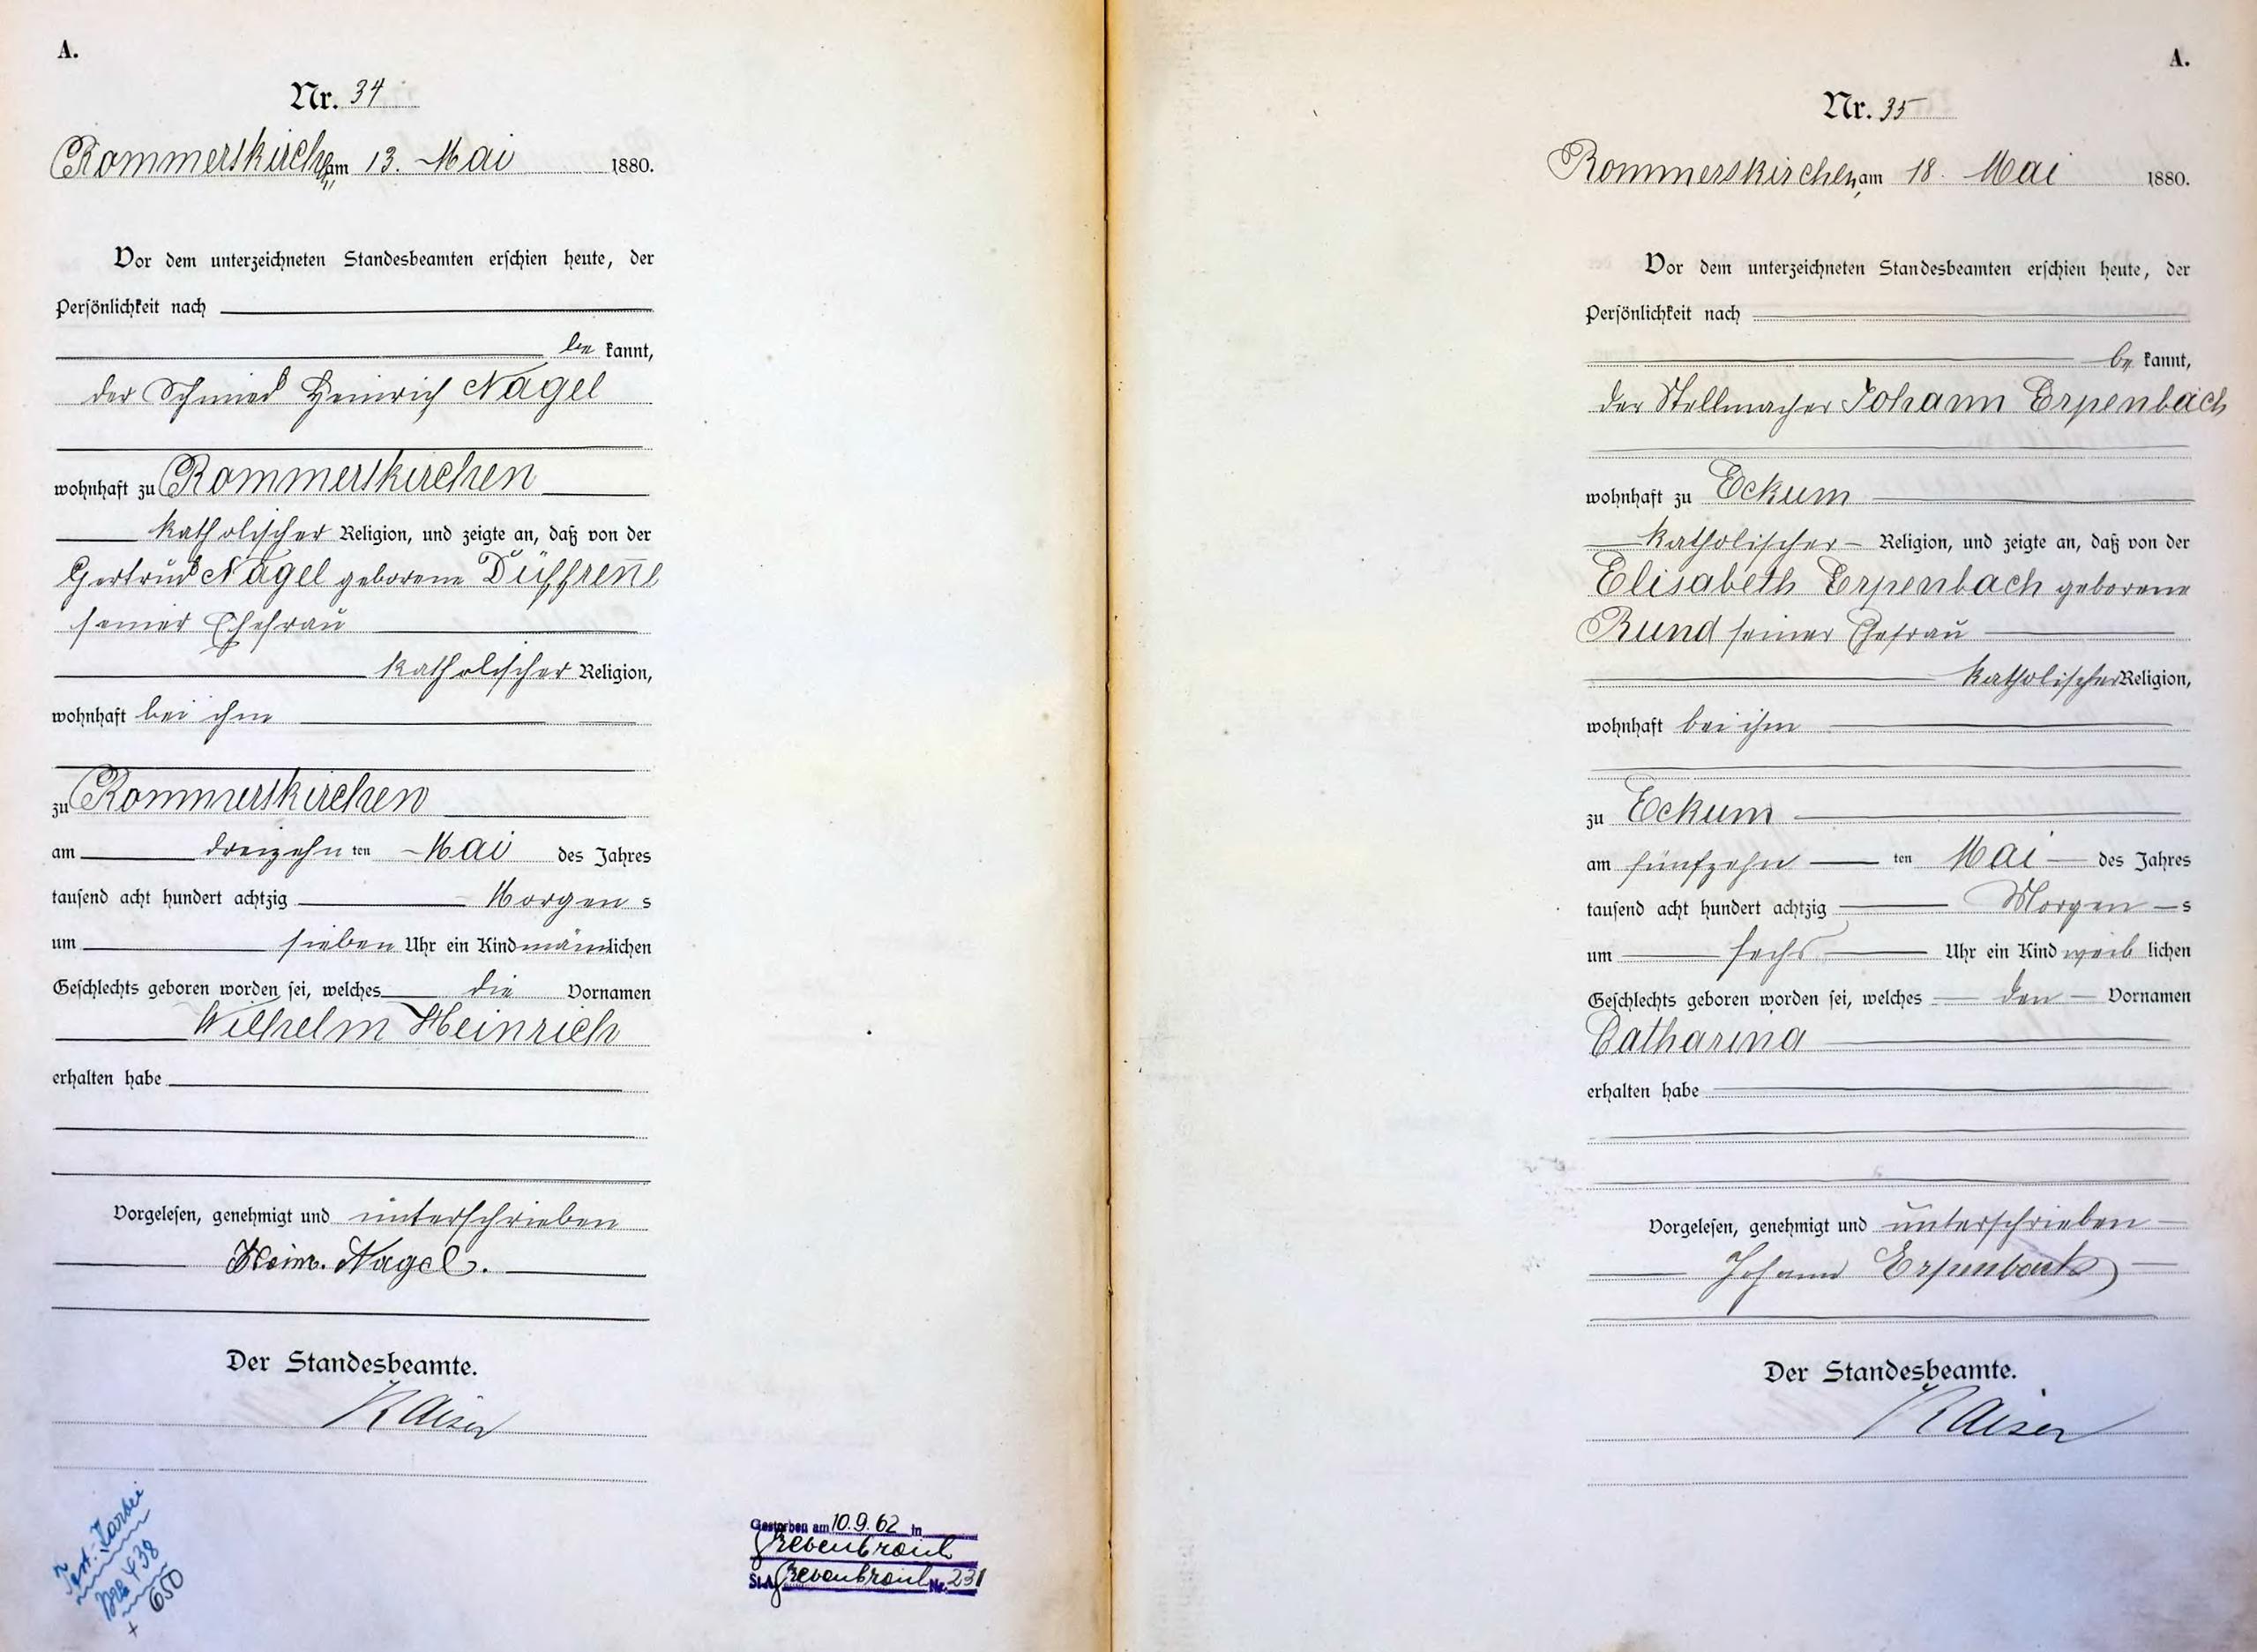 A.
Nr. 34
Rommerskirchen am 13. Mai 1880.
Vor dem unterzeichneten Standesbeamten erschien heute, der
Persönlichkeit nach
be kannt,
der Schmied Heinrich Nagel
wohnhaft zu Rommerskirchen
katholischer Religion, und zeigte an, daß von der
Gertrud Nagel geborene
seiner Ehefrau
katholischer Religion,
wohnhaft bei ihm
zu Rommerskirchen
am dreizehn ten Mai des Jahres
tausend acht hundert achtzig Morgen s
um sieben Uhr ein Kind männlichen
Geschlechts geboren worden sei, welches die Vornamen
Wilhelm Heinrich
erhalten habe
Vorgelesen, genehmigt und unterschrieben
Heinr. Nagel.
Der Standesbeamte.
Kaiser
438
+ 650
Gestorben am 10.9.62 in
Grevenbroich
St.A. Grevenbroich Nr. 231
A.
Nr. 35
Rommerskirchen, am 18. Mai 1880.
Vor dem unterzeichneten Standesbeamten erschien heute, der
Persönlichkeit nach
be kannt,
der Stellmacher Johann Erpenbach
wohnhaft zu Eckum
katholischer Religion, und zeigte an, daß von der
Elisabeth Erpenbach geborene
Rund seiner Ehefrau
katholischer Religion,
wohnhaft bei ihm
zu Eckum
am fünfzehn ten Mai des Jahres
tausend acht hundert achtzig Morgen s
um sechs Uhr ein Kind weib lichen
Geschlechts geboren worden sei, welches den Vornamen
Catharina
erhalten habe
Vorgelesen, genehmigt und unterschrieben
Johann Erpenbach
Der Standesbeamte.
Kaiser